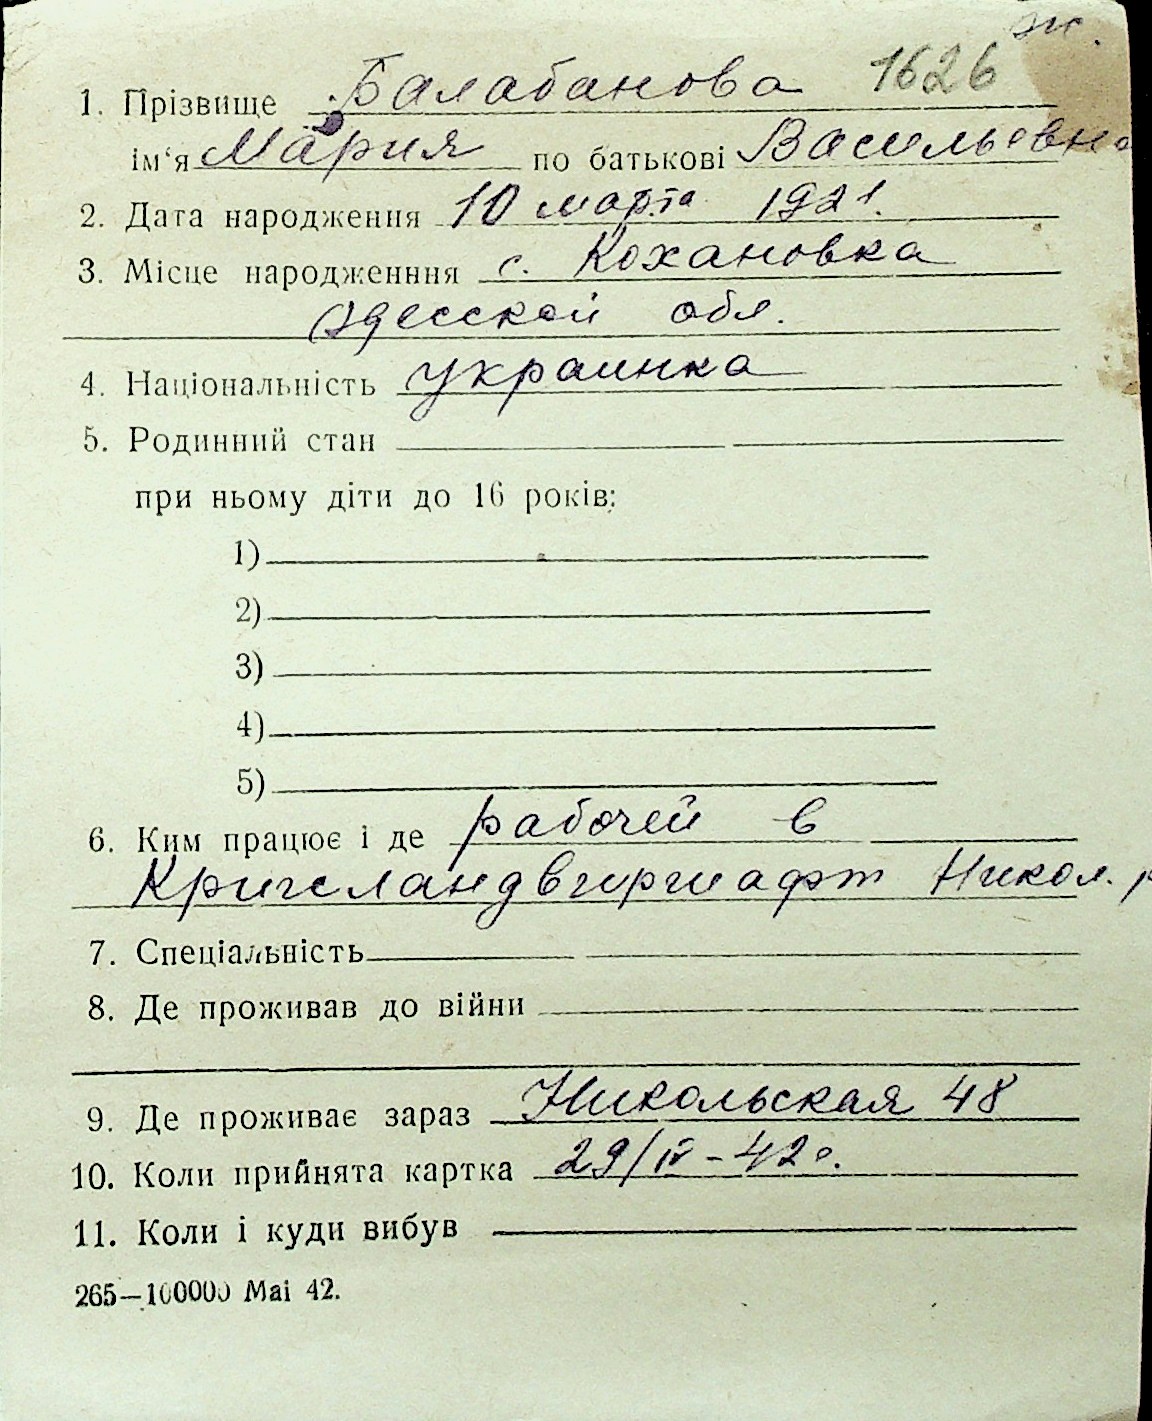 ж.
1. Прізвище Балабанова 1626
ім‘я Мария по батькові Васильевна
2. Дата народження 10 марта 1921.
3. Місце народженння с. Кохановка
Одесской обл.
4. Національність украинка
5. Родинний стан
при ньому діти до 16 років:
1)
2)
3)
4)
5)
6. Ким працює і де рабочей в
Никол.
7. Спеціальність
8. Де проживав до війни
9. Де проживає зараз Никольская 48
10. Коли прийнята картка 29/IV-42г.
11. Коли і куди вибув
265—100000 Mai 42.